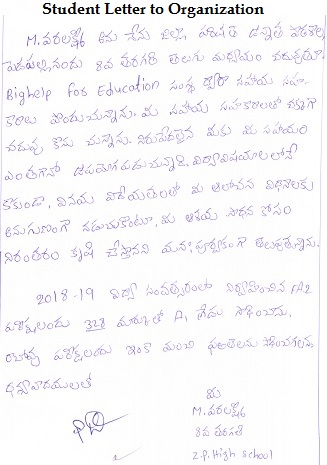 Student Letter to Organization
M. వరలక్ష్మి అను నేను జిల్లా పరిషత్ ఉన్నత పాఠశాల
నందు 8వ తరగతి తెలుగు మధ్యమం చదువుచున్నాను.
Bighelp for Education సంస్థ ద్వారా సహాయ సహ
కారాలు పొందుచున్నాను. మీ సహాయ సహకారాలతో చక్కగా
చదువు కొను చున్నాను. నిరుపేదలైన మాకు మీ సహాయం
ఎంతగానో ఉపయోగపడుచున్నాది. విద్యావిషయాలలోనే
కాకుండా, వినయ విధేయతలతో మీ ఆలోచన విధానాలకు
అనుగుణంగా నడుచుకొంటూ, మీ ఆశయ సాధన కోసం
నిరంతరం కృషి చేస్తానని మనః పూర్వకంగా తెలుపుతున్నాను.
2018-19 విద్యా సంవత్సరంలో నిర్వహించిన FA2
పరీక్షలందు 328 మార్కులతో A1 గ్రేడు సాధించాను.
రాబోవు పరీక్షలందు ఇంకా మంచి ఫలితాలను సాధించగలను.
ధన్యవాదములతో
మీ
M. వరలక్ష్మి
8వ తరగతి
Z.P. High school